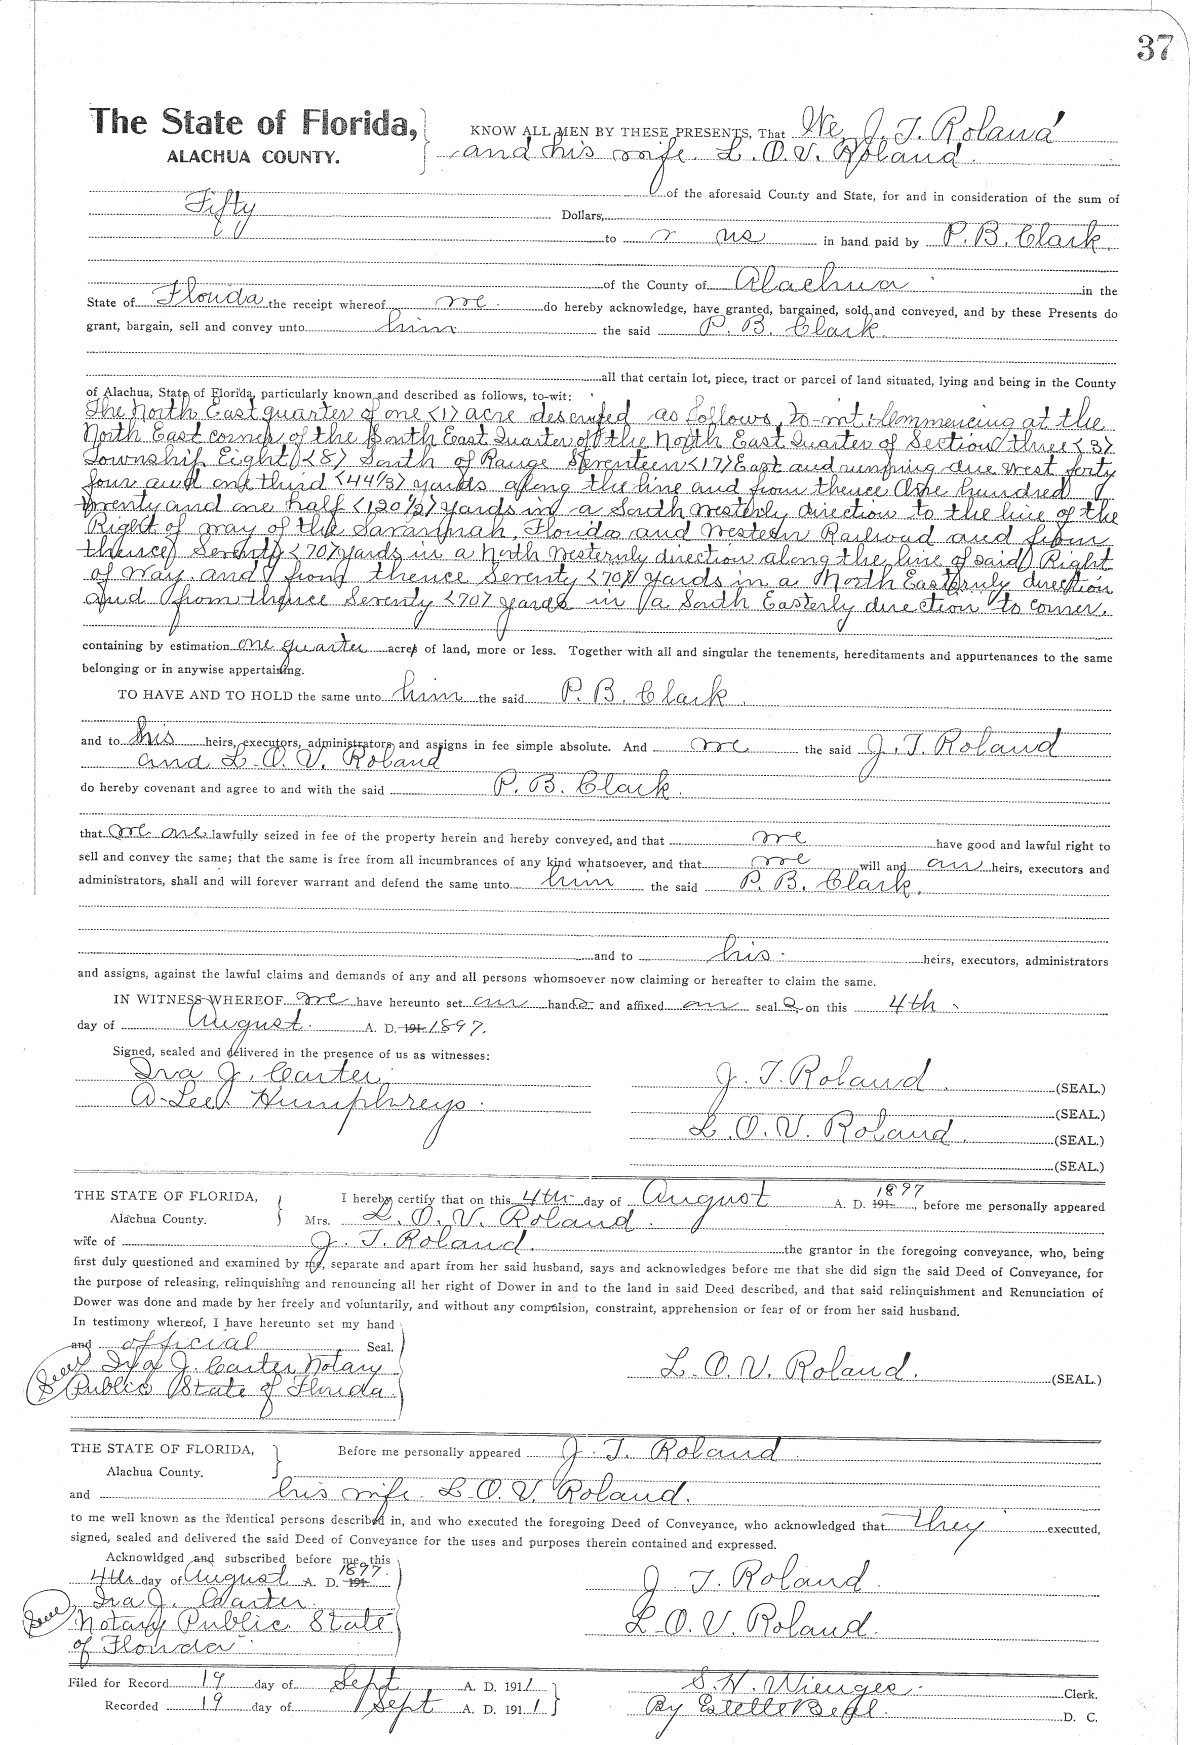 37
The State of Florida, KNOW ALL MEN BY THESE PRESENTS, That We, J. T. Roland
ALACHUA COUNTY. and his wife L. O. V. Roland
of the aforesaid County and State, for and in consideration of the sum of
Fifty Dollars,
to us in hand paid by P. B. Clark
of the County of Alachua in the
State of Florida the receipt whereof we do hereby acknowledge, have granted, bargained, sold and conveyed, and by these Presents do
grant, bargain, sell and convey unto him the said P. B. Clark
all that certain lot, piece, tract or parcel of land situated, lying and being in the County
of Alachua, State of Florida, particularly known and described as follows, to-wit:
The North East quarter of one <1> acre described as follows, to-wit: Commencing at the
North East corner of the South East Quarter of the North East Quarter of Section three <3>
Township Eight <8> South of Range Seventeen <17> East and running due west forty
four and one third <44 1/3> yards along the line and from thence One hundred
twenty and one half <120 1/2> yards in a South Westerly direction to the line of the
Right of way of the Savannah, Florida and Western Railroad and from
thence Seventy <70> yards in a North Westernly direction along the line of said Right
of way. and from thence Seventy <70> yards in a North Easternly direction
and from thence Seventy <70> yards in a South Easterly direction to corner.
containing by estimation one quarter acres of land, more or less. Together with all and singular the tenements, hereditaments and appurtenances to the same
belonging or in anywise appertaining.
TO HAVE AND TO HOLD the same unto him the said P. B. Clark
and to his heirs, executors, administrators and assigns in fee simple absolute. And we the said J. T. Roland
and L. O. V. Roland
do hereby covenant and agree to and with the said P. B. Clark.
that we are lawfully seized in fee of the property herein and hereby conveyed, and that we have good and lawful right to
sell and convey the same; that the same is free from all incumbrances of any kind whatsoever, and that we will and our heirs, executors and
administrators, shall and will forever warrant and defend the same unto him the said P. B. Clark.
and to his heirs, executors, administrators
and assigns, against the lawful claims and demands of any and all persons whomsoever now claiming or hereafter to claim the same.
IN WITNESS WHEREOF we have hereunto set our hands and affixed our seals on this 4th
day of August A. D. 191 1897.
Signed, sealed and delivered in the presence of us as witnesses:
Ira J. Carter J. T. Roland (SEAL.)
A. Lee Humphreys. (SEAL.)
L. O. V. Roland (SEAL.)
(SEAL.)
THE STATE OF FLORIDA, I hereby certify that on this 4th day of August A. D. 191 1897, before me personally appeared
Alachua County. Mrs. L. O. V. Roland
wife of J. T. Roland. the grantor in the foregoing conveyance, who, being
first duly questioned and examined by me, separate and apart from her said husband, says and acknowledges before me that she did sign the said Deed of Conveyance, for
the purpose of releasing, relinquishing and renouncing all her right of Dower in and to the land in said Deed described, and that said relinquishment and Renunciation of
Dower was done and made by her freely and voluntarily, and without any compulsion, constraint, apprehension or fear of or from her said husband.
In testimony whereof, I have hereunto set my hand
and official Seal.
Seal Ira J. Carter Notary L. O. V. Roland. (SEAL.)
Public State of Florida
THE STATE OF FLORIDA, Before me personally appeared J. T. Roland
Alachua County.
and his wife L. O. V. Roland.
to me well known as the identical persons described in, and who executed the foregoing Deed of Conveyance, who acknowledged that they executed,
signed, sealed and delivered the said Deed of Conveyance for the uses and purposes therein contained and expressed.
Acknowldged and subscribed before me this
4th day of August A. D. 191 1897. J. T. Roland
Seal Ira J. Carter
Notary Public State L. O. V. Roland.
of Florida
Filed for Record 19 day of Sept A. D. 1911 S. H. Wienges. Clerk.
Recorded 19 day of Sept A. D. 1911 By Estelle D. C.